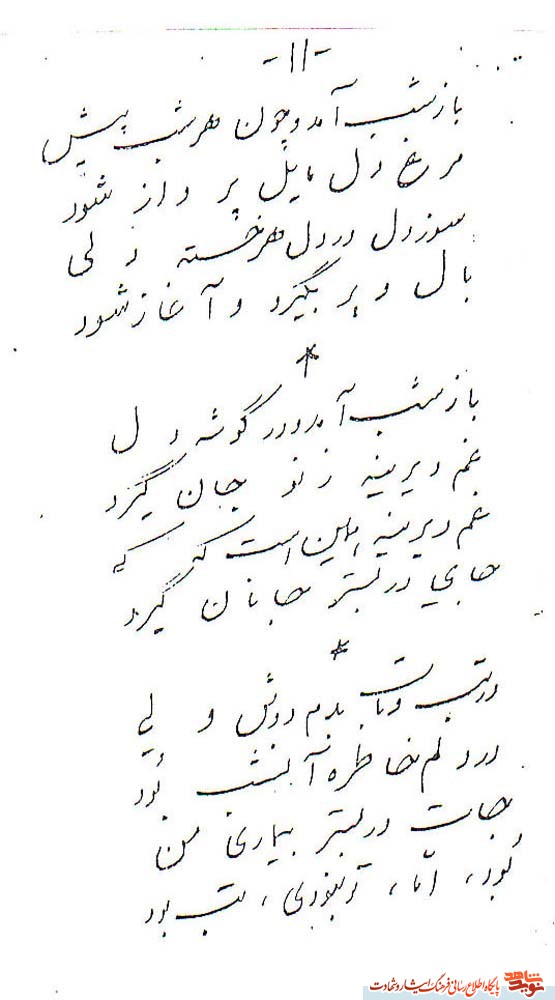 -۱۱-
باز شب آمد و چون هر شب پیش
مرغ دل مایل پرواز شود
سوز دل در دل هر خسته دلی
بال و پر بگیرد و آغاز شود
*
باز شب آمد و در گوشه دل
غم دیرینه ز نو جان گیرد
غم دیرینه است که
جایی در بستر جانان گیرد
*
در تب و تاب بدم دوش ولی
در دلم خاطره آنشب بود
جات در بستر بیماری من
بود، امّا، تو نبودی، تب بود
نوید شاهد پایگاه اطلاع رسانی فرهنگ ایثار و شهادت